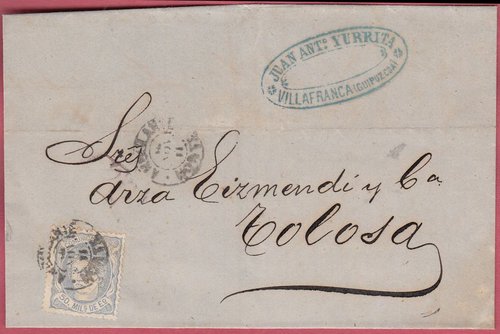 JUAN ANTº YURRITA
VILLAFRANCA (GUIPUZCOA)
Sres
arza Eizmendi y Ca
Tolosa
50 MILS DE Eo